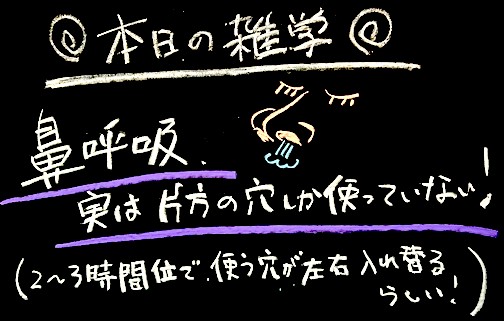 @ 本日の雑学 @
鼻呼吸.
実は片方の穴しか使っていない!
(2~3時間位で.使う穴が左右入れ替る
らしい!)